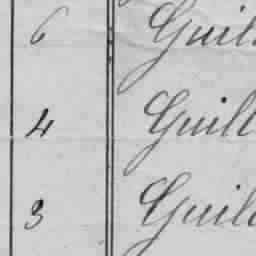 6 Guil
4 Guill
3 Guil